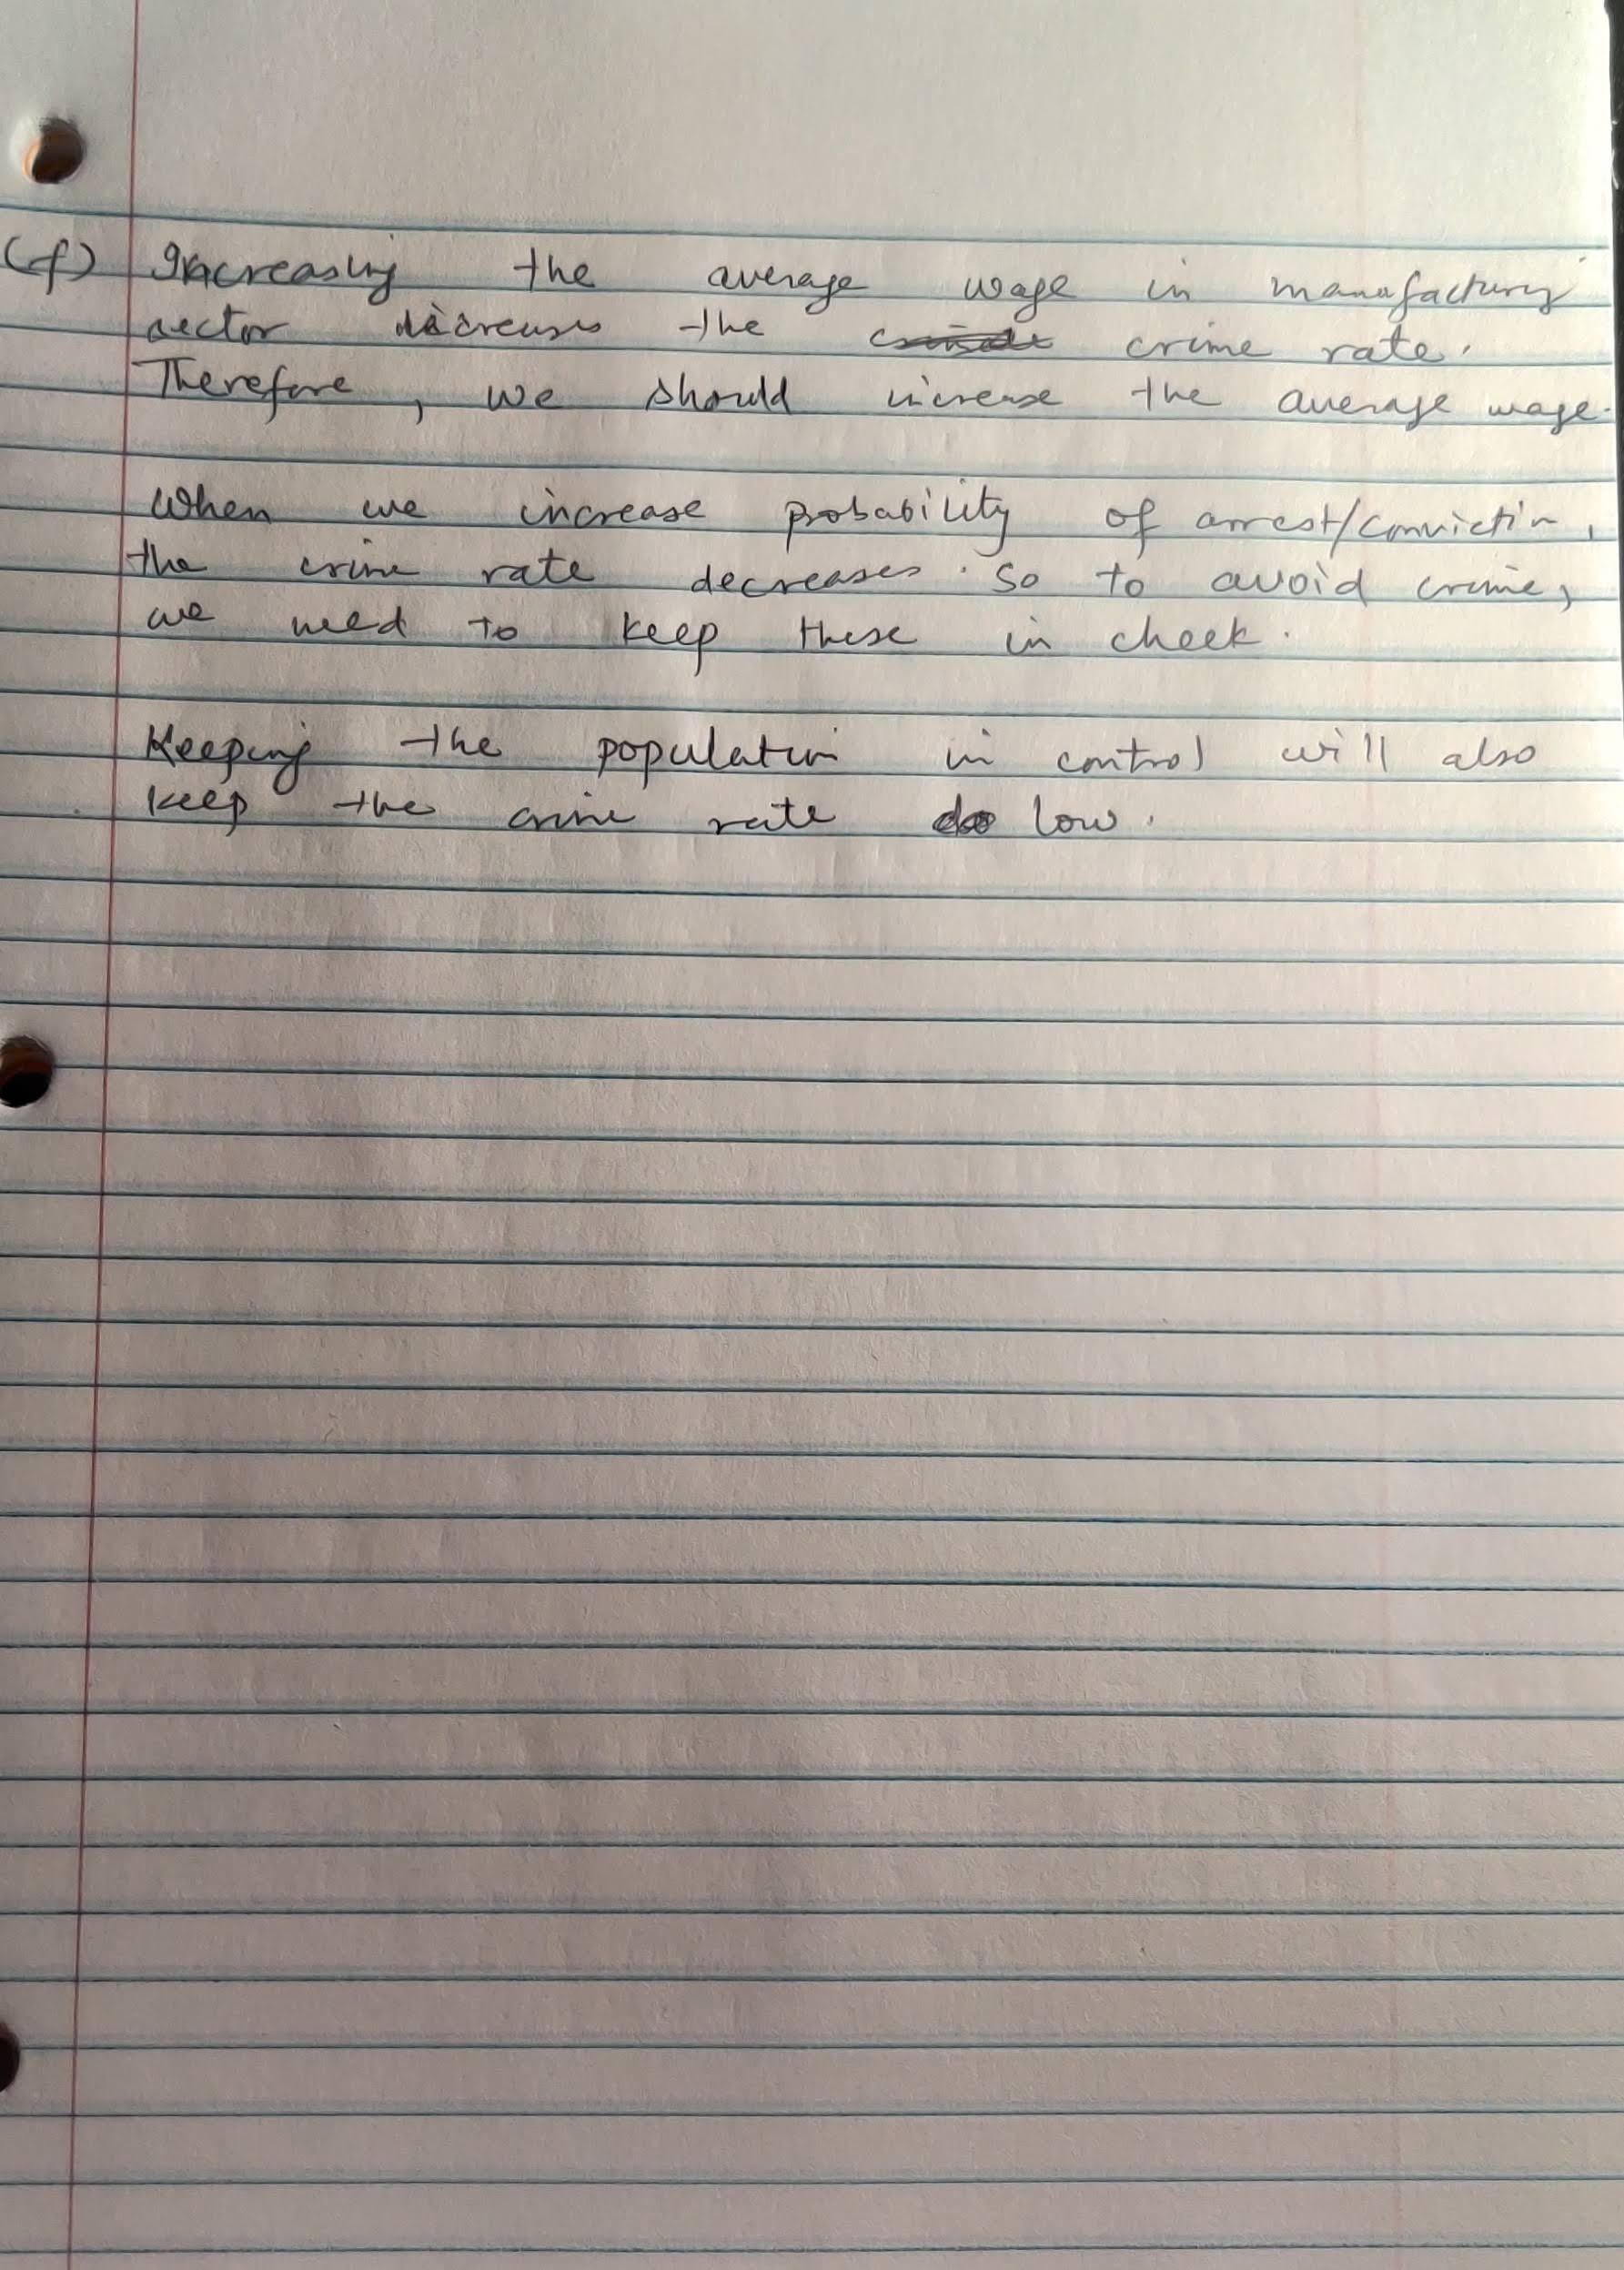 (f) Increasing the average wage in manufacturing
sector decreases the crime rate.
Therefore, we should increase the average wage.
When we increase probability of arrest/conviction,
the crime rate decreases. So to avoid crime,
we need to keep these in check.
Keeping the population in control will also
keep the crime rate low.